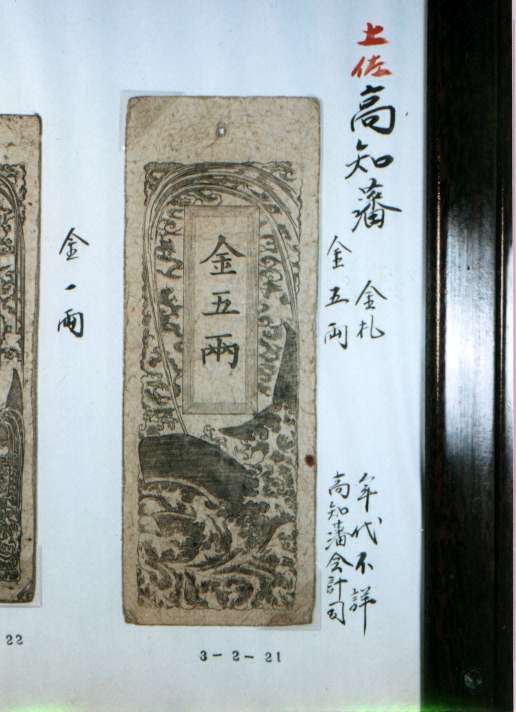 土佐
高知藩
金札
金五兩
年代不詳
高知藩会計司
金五兩
金一兩
3-2-21
22